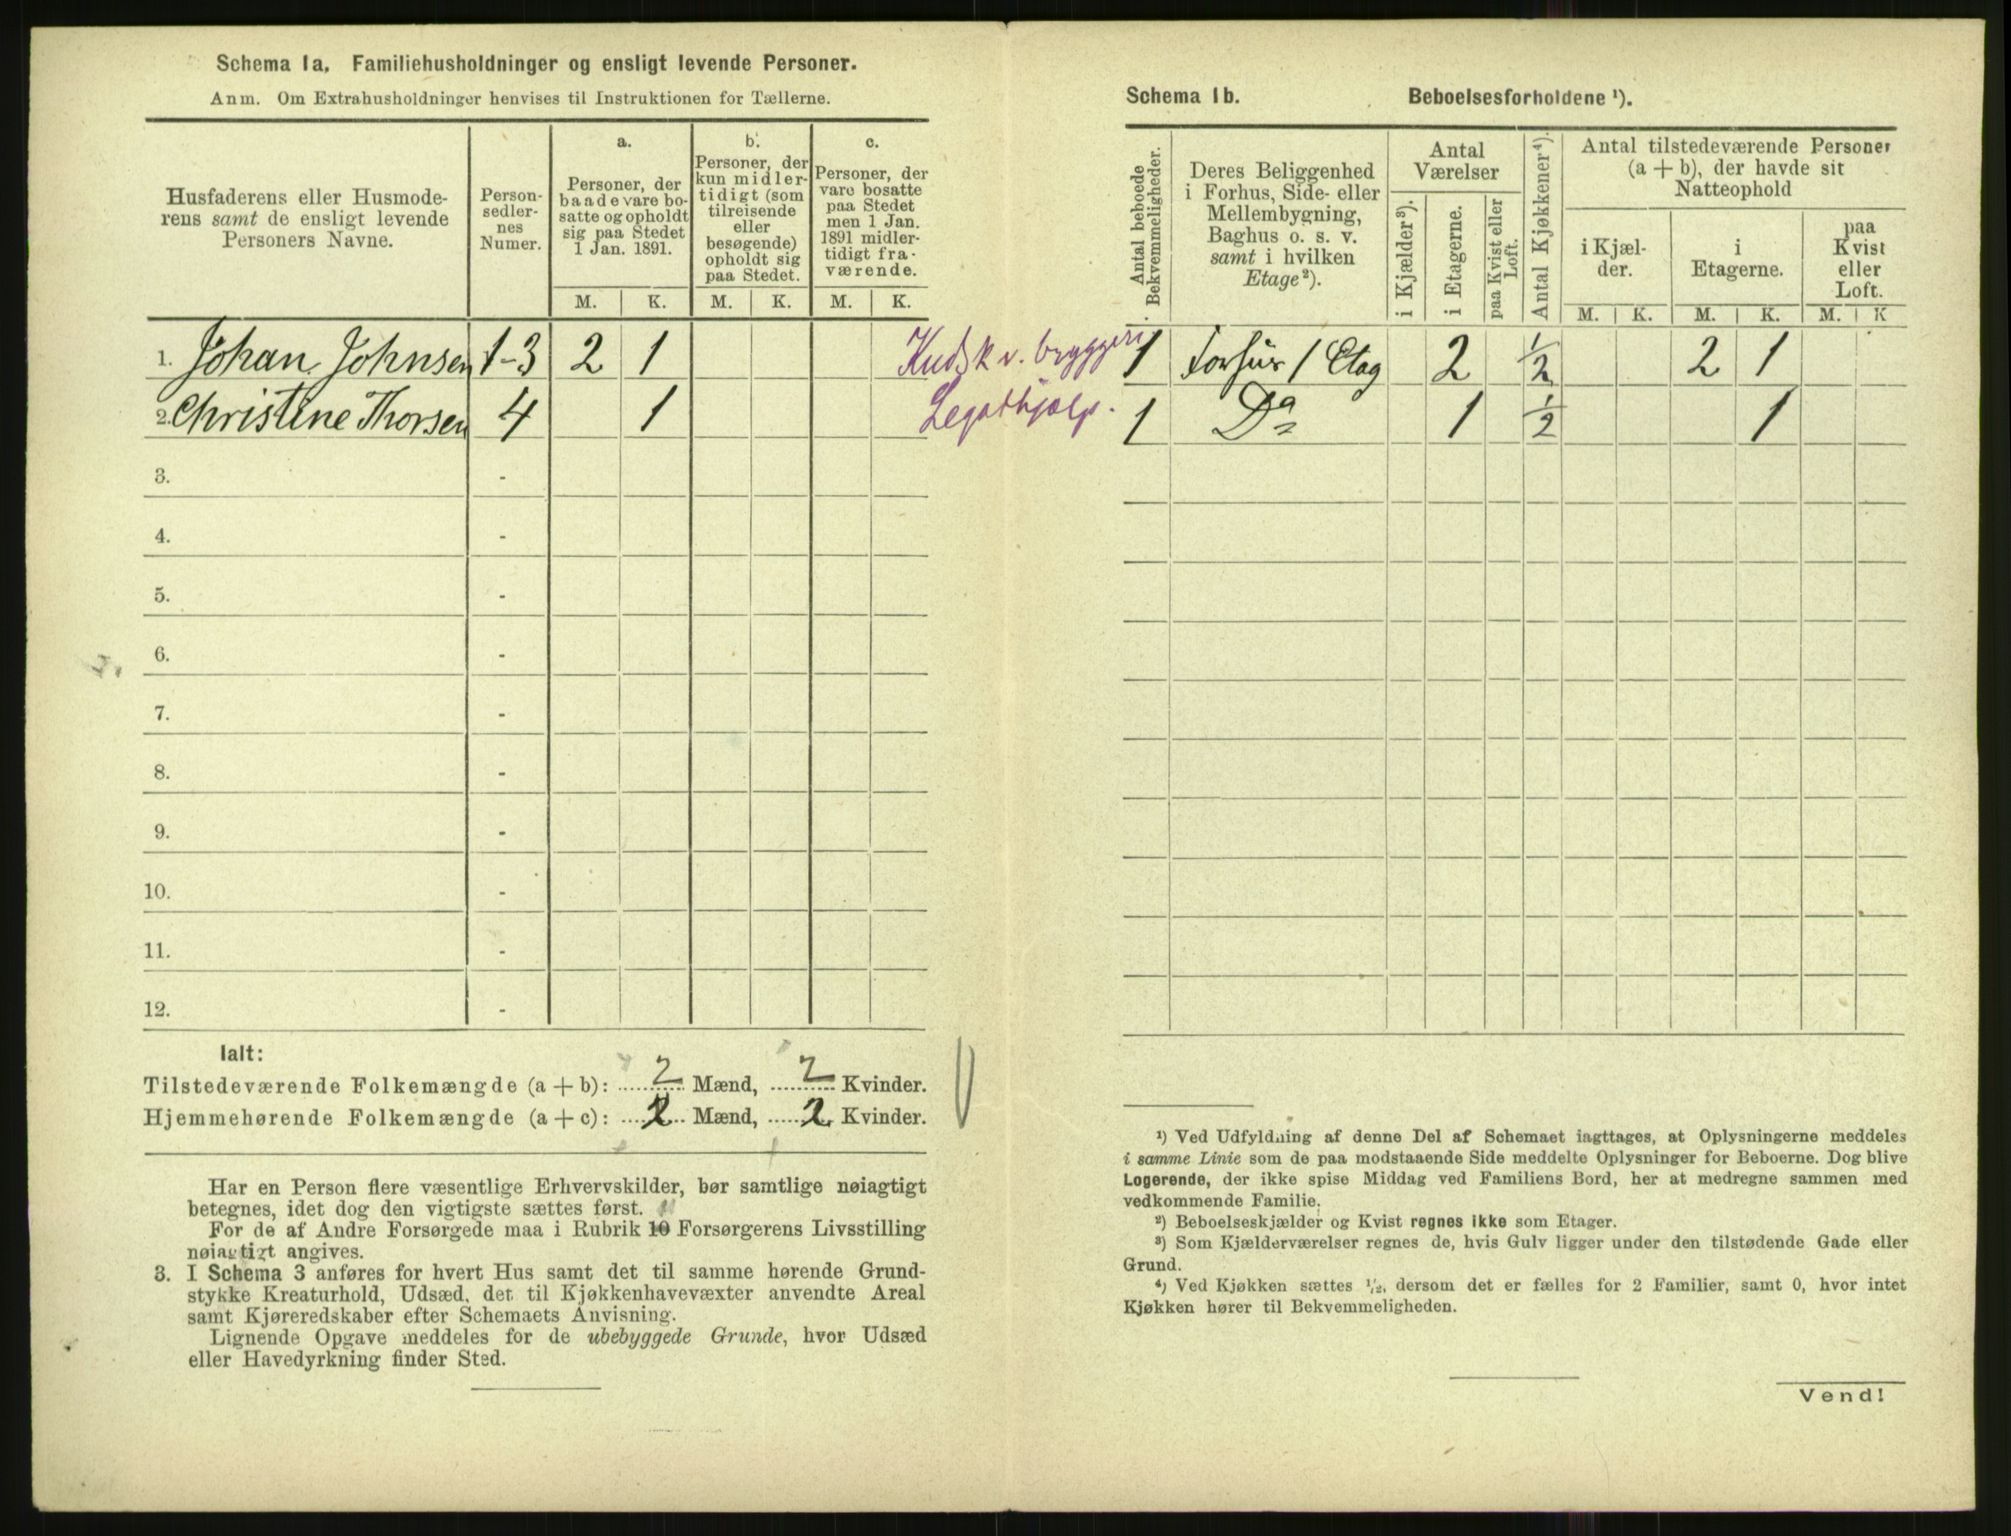 Schema 1a. Familiehusholdninger og ensligt levende Personer.
Anm. Om Extrahusholdninger henvises til Instruktionen for Tællerne.
Husfaderens eller Husmoderens samt de ensligt levende Personers Navne.
Personsedlernes Numer.
a. Personer, der baade vare bosatte og opholdt sig paa Stedet 1 Jan. 1891.
b. Personer, der kun midlertidigt (som tilreisende eller besøgende) opholdt sig paa Stedet.
c. Personer, der vare bosatte paa Stedet men 1 Jan. 1891 midlertidigt fraværende.
M. K. M. K. M. K.
1. Johan Johnsen 1-3 2 1 Kudsk v. bryggeri
2. Christine Thorsen 4 1 Legathjælp.
3. -
4. -
5. -
6. -
7. -
8. -
9. -
10. -
11. -
12. -
Ialt:
Tilstedeværende Folkemængde (a + b): 2 Mænd, 2 Kvinder.
Hjemmehørende Folkemængde (a + c): 2 Mænd, 2 Kvinder.
Har en Person flere væsentlige Erhvervskilder, bør samtlige nøiagtigt
betegnes, idet dog den vigtigste sættes først.
For de af Andre Forsørgede maa i Rubrik 10 Forsørgerens Livsstilling
nøiagtigt angives.
3. I Schema 3 anføres for hvert Hus samt det til samme hørende Grund-
stykke Kreaturhold, Udsæd, det til Kjøkkenhavevæxter anvendte Areal
samt Kjøreredskaber efter Schemaets Anvisning.
Lignende Opgave meddeles for de ubebyggede Grunde, hvor Udsæd
eller Havedyrkning finder Sted.
Schema 1b. Beboelsesforholdene ¹).
Antal beboede Bekvemmeligheder.
Deres Beliggenhed i Forhus, Side- eller Mellembygning, Baghus o. s. v. samt i hvilken Etage ²).
Antal Værelser
i Kjælder ³).
i Etagerne.
paa Kvist eller Loft.
Antal Kjøkkener ⁴).
Antal tilstedeværende Personer (a + b), der havde sit Natteophold
i Kjælder.
i Etagerne.
paa Kvist eller Loft.
M. K. M. K. M. K
1 Forhus 1 Etag 2 ½ 2 1
1 Do 1 ½ 1
¹) Ved Udfyldning af denne Del af Schemaet iagttages, at Oplysningerne meddeles
i samme Linie som de paa modstaaende Side meddelte Oplysninger for Beboerne. Dog blive
Logerende, der ikke spise Middag ved Familiens Bord, her at medregne sammen med
vedkommende Familie.
²) Beboelseskjælder og Kvist regnes ikke som Etager.
³) Som Kjælderværelser regnes de, hvis Gulv ligger under den tilstødende Gade eller
Grund.
⁴) Ved Kjøkken sættes ½, dersom det er fælles for 2 Familier, samt 0, hvor intet
Kjøkken hører til Bekvemmeligheden.
Vend!